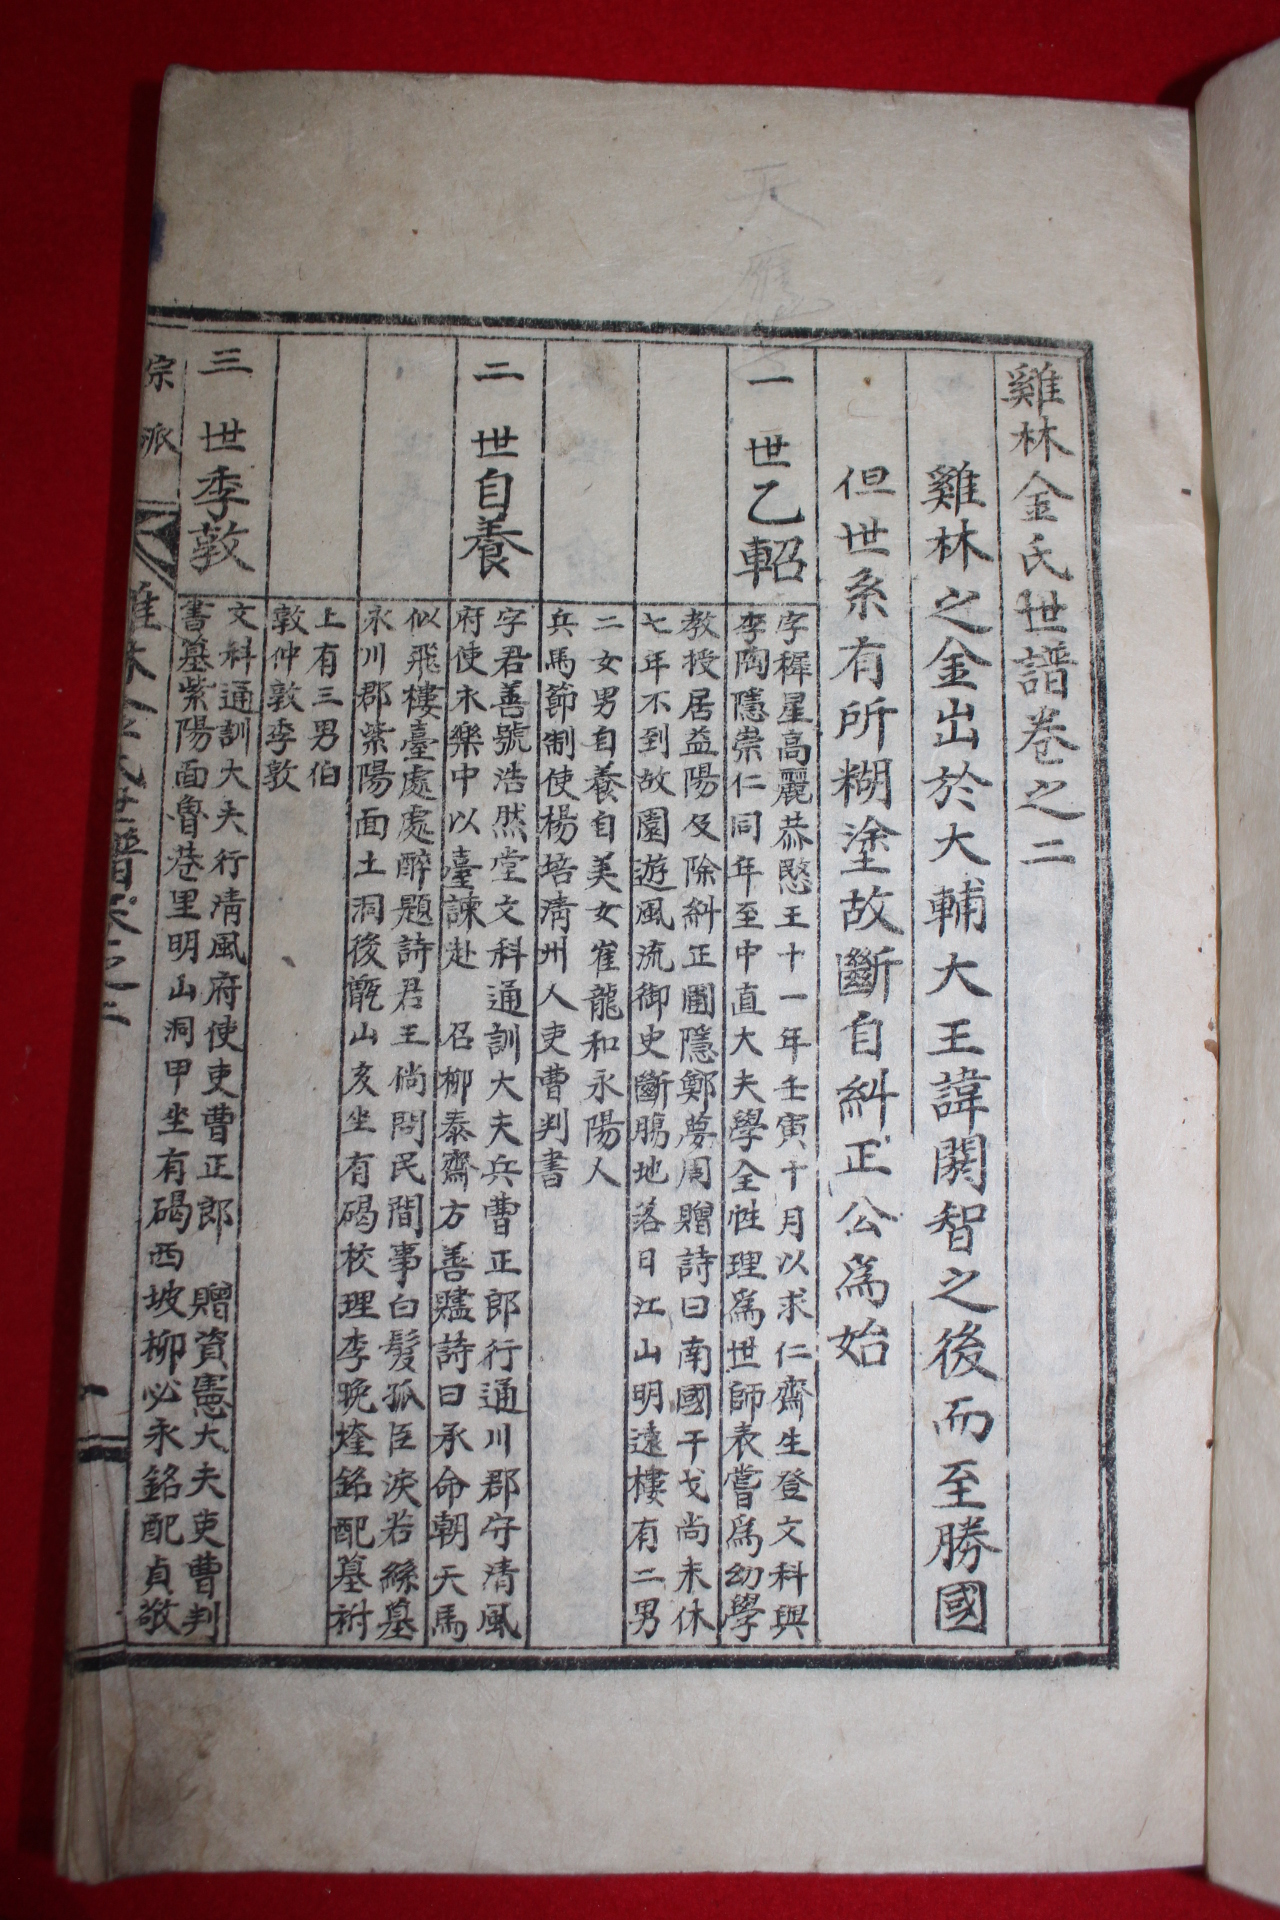 雞林金氏世譜卷之二
雞林之金出於大輔大王諱閼智之後而至勝國
但世系有所糊塗故斷自糾正公爲始
一世乙軺
字穉星高麗恭愍王十一年壬寅十月以求仁齋生登文科與
李陶隱崇仁同年至中直大夫學全性理爲世師表嘗爲幼學
教授居益陽及除糾正圃隱鄭夢周贈詩曰南國干戈尚未休
七年不到故園遊風流御史斷腸地落日江山明遠樓有二男
二女男自養自美女崔龍和永陽人
兵馬節制使楊培清州人吏曹判書
二世自養
字君善號浩然堂文科通訓大夫兵曹正郎行通川郡守清風
府使永樂中以臺諫赴 召柳泰齋方善贐詩曰承命朝天馬
似飛樓臺處處醉題詩君王倘問民間事白髮孤臣淚若絲墓
永川郡紫陽面土洞後甑山亥坐有碣校理李晚煃銘配墓祔
上有三男伯
敦仲敦季敦
三世季敦
文科通訓大夫行清風府使吏曹正郎 贈資憲大夫吏曹判
書墓紫陽面魯巷里明山洞甲坐有碣西坡柳必永銘配貞敬
宗派
雞林金氏世譜卷之二
一
天